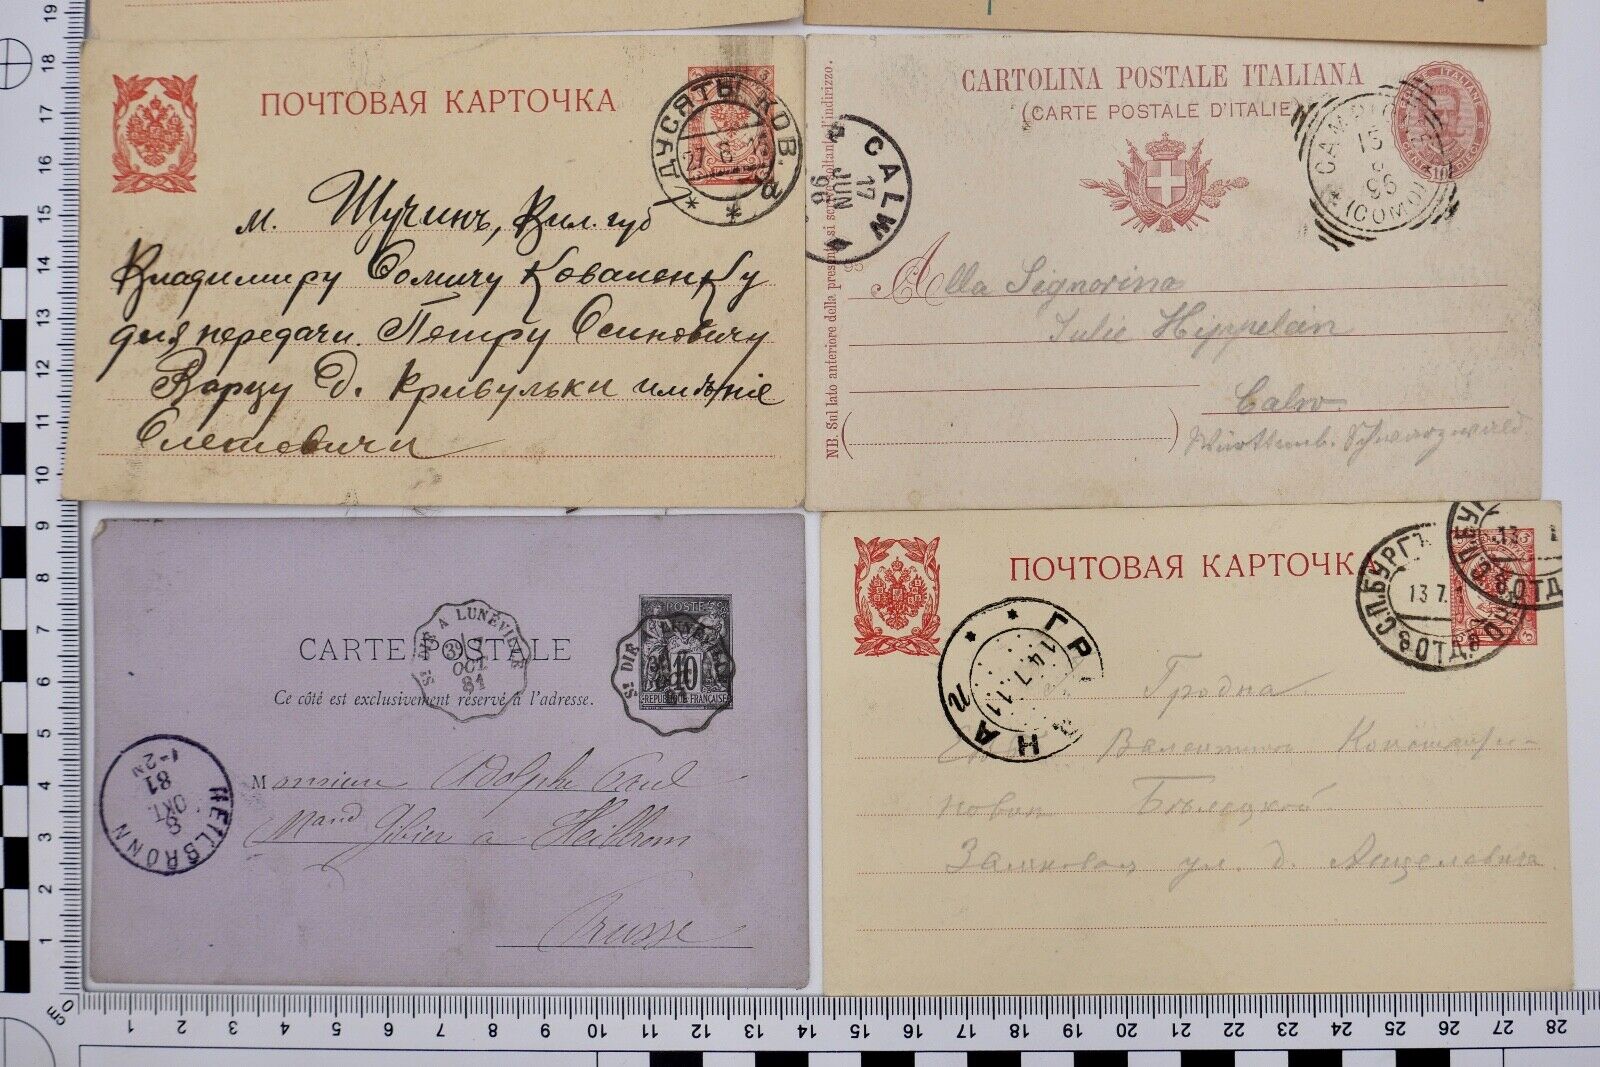 ПОЧТОВАЯ КАРТОЧКА
ДУСЯТЫ КОВ.
27 8 1
а
м. Щучинъ, Вил. губ
Владимиру Фомичу Коваленку
для передачи Петру Осиповичу
Варцу д. Кривульки имѣніе
CARTOLINA POSTALE ITALIANA
(CARTE POSTALE D'ITALIE)
(COMO)
15
96
CALW
17
JUN
96
NB. Sul lato anteriore della presente si scrive soltanto l'indirizzo.
95
Alla Signorina
Julie Hippelein
Calw
Württemb. Schwarzwald
CARTE POSTALE
Ce côté est exclusivement réservé à l'adresse.
St DIÉ A LUNÉVILLE
OCT
81
POSTE
10
REPUBLIQUE FRANÇAISE
HEILBRONN
8
OKT.
81
1-2 N
Monsieur Adolphe
Mand à Heilbronn
Prusse
ПОЧТОВАЯ КАРТОЧК
С.П.БУРГЪ
13 7.
13
ОТД
14.7.11
Гродна
Валентинѣ Константи-
новнѣ Бѣлецкой
Замковая ул. д.
19
18
17
16
15
14
13
12
11
10
9
8
7
6
5
4
3
2
1
0
cm
1 2 3 4 5 6 7 8 9 10 11 12 13 14 15 16 17 18 19 20 21 22 23 24 25 26 27 28